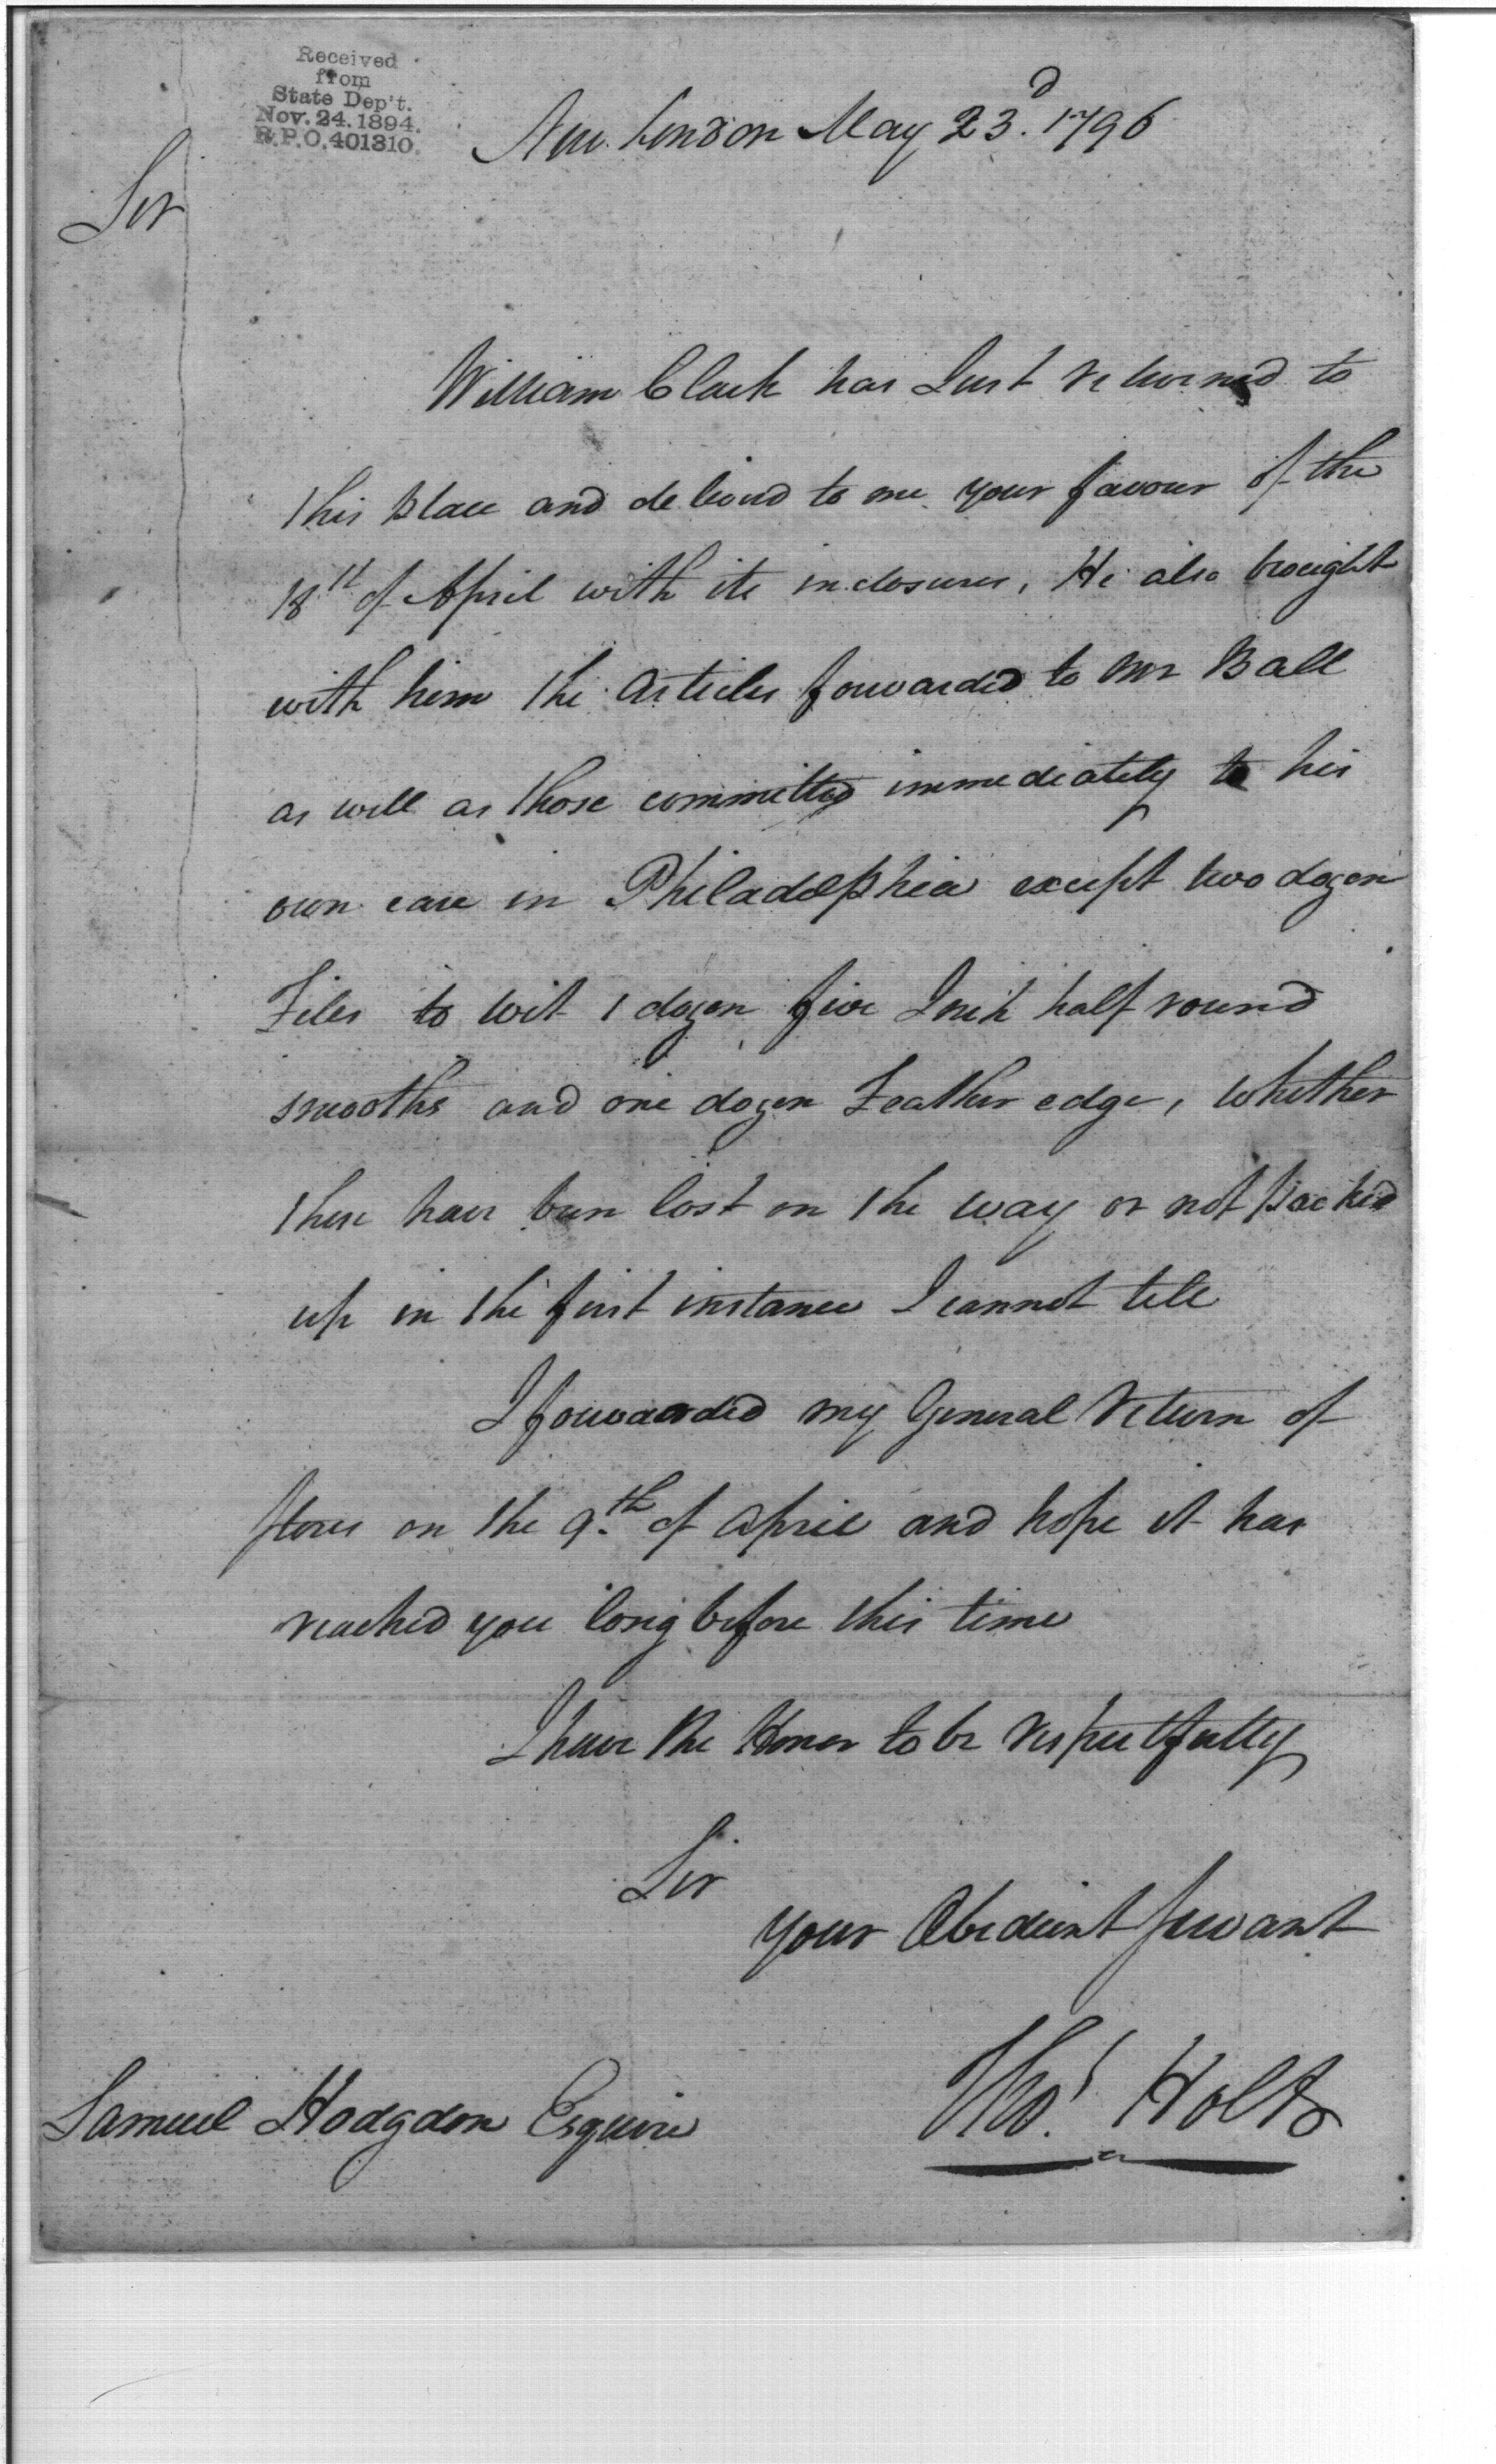 Received
from
State Dep't.
Nov. 24. 1894.
R.P.O. 401310.
New London May 23.d 1796
Sir
William Clark has Just returned to
this place and deliverd to me your favour of the
18th of April with its inclosures, He also brought
with him the articles forwarded to Mr Ball
as well as those committed immediately to his
own care in Philadelphia except two dozen
Files to wit 1 dozen five Inch half round
smooths and one dozen Feather edge, whether
these have been lost on the way or not packed
up in the first instance I cannot tell
I forwaarded my General return of
stores on the 9.th of April and hope it has
reached you long before this time
I have the Honor to be respectfully
Sir
your Obedient servant
Thos. Holt
Samuel Hodgdon Esquire